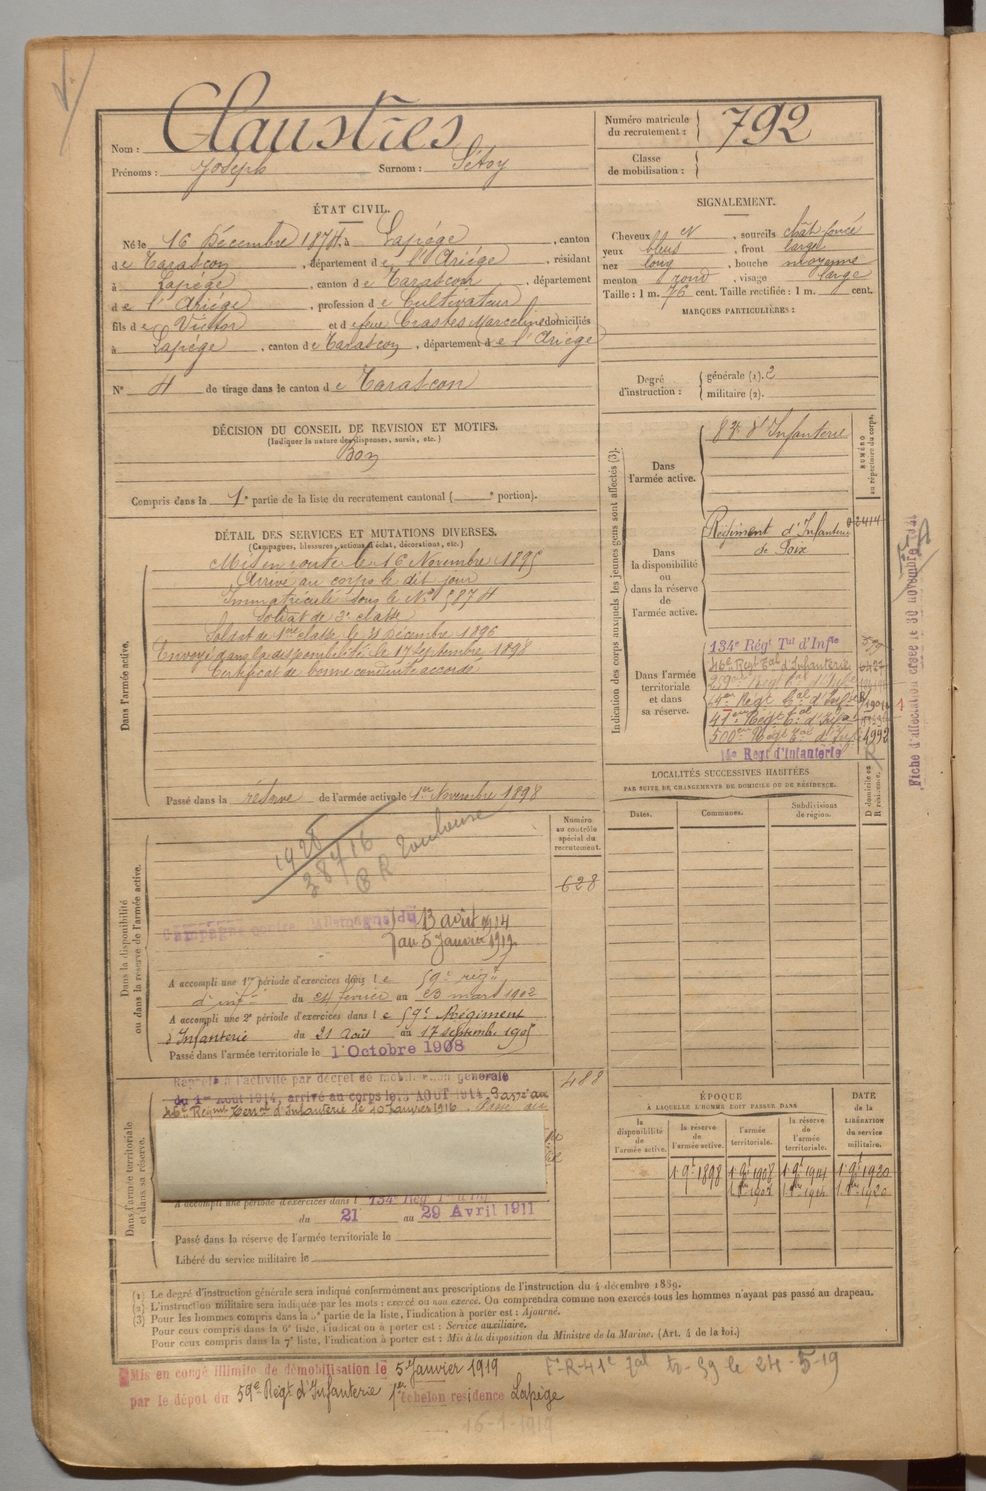 Nom : Claustres
Prénoms : Joseph Surnom : Sétoy
Numéro matricule du recrutement : 792
Classe de mobilisation :
ÉTAT CIVIL.
Né le 16 Décembre 1874, à Lapège, canton
de Tarascon, département de l'Ariège, résidant
à Lapège, canton de Tarascon, département
de l'Ariège, profession de Cultivateur
fils de Victor et de feue Crastes Marceline domiciliés
à Lapège, canton de Tarascon, département de l'Ariège
N° 4 de tirage dans le canton de Tarascon
SIGNALEMENT.
Cheveux, sourcils chât foncé
yeux bleus, front large
nez long, bouche moyenne
menton rond, visage large
Taille : 1 m. 76 cent. Taille rectifiée : 1 m. cent.
MARQUES PARTICULIÈRES :
Degré d'instruction : générale (1). 2
militaire (2).
DÉCISION DU CONSEIL DE REVISION ET MOTIFS.
(Indiquer la nature des dispenses, sursis, etc.)
Bon
Compris dans la 1e partie de la liste du recrutement cantonal ( e portion).
DÉTAIL DES SERVICES ET MUTATIONS DIVERSES.
(Campagnes, blessures, actions d'éclat, décorations, etc.)
Dans l'armée active.
Mis en route le 16 Novembre 1895
Arrivé au corps le dit jour
Immatriculé sous le N° 5874
Soldat de 2e classe
Soldat de 1ère classe le 31 Décembre 1896
Envoyé dans la disponibilité le 17 septembre 1898
Certificat de bonne conduite accordé
Passé dans la réserve de l'armée active le 1er Novembre 1898
Indication des corps auxquels les jeunes gens sont affectés (3).
NUMÉRO au répertoire du corps.
Dans l'armée active.
d'Infanterie
Dans la disponibilité ou dans la réserve de l'armée active.
Régiment d'Infanterie
de Foix
02414
Dans l'armée territoriale et dans sa réserve.
134e Régt Tal d'Infie
46e Regt Tal d'Infanterie
Régt Tal d'Infie
Régt Tal d'Infie
Régt Tal d'Infie
500e Régt Tal d'Infie 4992
14e Regt d'Infanterie
Fiche d'affectation créée le 30 novembre 1921
LOCALITÉS SUCCESSIVES HABITÉES
PAR SUITE DE CHANGEMENTS DE DOMICILE OU DE RÉSIDENCE.
Dates. Communes. Subdivisions de région. D domicile ou R résidence.
Dans la disponibilité ou dans la réserve de l'armée active.
Numéro au contrôle spécial du recrutement.
628
1928
38716
BR Toulouse
Campagne contre l'Allemagne du 13 août 1914
au 5 Janvier 1919.
A accompli une 1re période d'exercices dans le 59e régt
d'infie du 24 février au 23 mars 1902
A accompli une 2e période d'exercices dans le 59e Régiment
d'Infanterie du 21 Août au 17 septembre 1905
Passé dans l'armée territoriale le 1 Octobre 1908
Dans l'armée territoriale et dans sa réserve.
488
Rappelé à l'activité par décret de mobilisation générale
du 1er Août 1914, arrivé au corps le 13 AOUT 1914. Passé au
46e Régimt Terral d'Infanterie le 10 Janvier 1916. Passé au
A accompli une période d'exercices dans l 134e Régt Tal d'Inf
du 21 au 29 Avril 1911
Passé dans la réserve de l'armée territoriale le
Libéré du service militaire le
ÉPOQUE
À LAQUELLE L'HOMME DOIT PASSER DANS
la disponibilité de l'armée active. la réserve de l'armée active. l'armée territoriale. la réserve de l'armée territoriale.
DATE de la LIBÉRATION du service militaire.
1 9bre 1898 1 9bre 1908 1 9bre 1914 1 9bre 1920
(1) Le degré d'instruction générale sera indiqué conformément aux prescriptions de l'instruction du 4 décembre 1889.
(2) L'instruction militaire sera indiquée par les mots : exercé ou non exercé. On comprendra comme non exercés tous les hommes n'ayant pas passé au drapeau.
(3) Pour les hommes compris dans la e partie de la liste, l'indication à porter est : Ajourné.
Pour ceux compris dans la 6e liste, l'indication à porter est : Service auxiliaire.
Pour ceux compris dans la 7e liste, l'indication à porter est : Mis à la disposition du Ministre de la Marine. (Art. 4 de la loi.)
Mis en congé illimité de démobilisation le 5 Janvier 1919
par le dépôt du 59e Régt d'Infanterie 1er échelon residence Lapège
le 24-5-19
16-1-1919